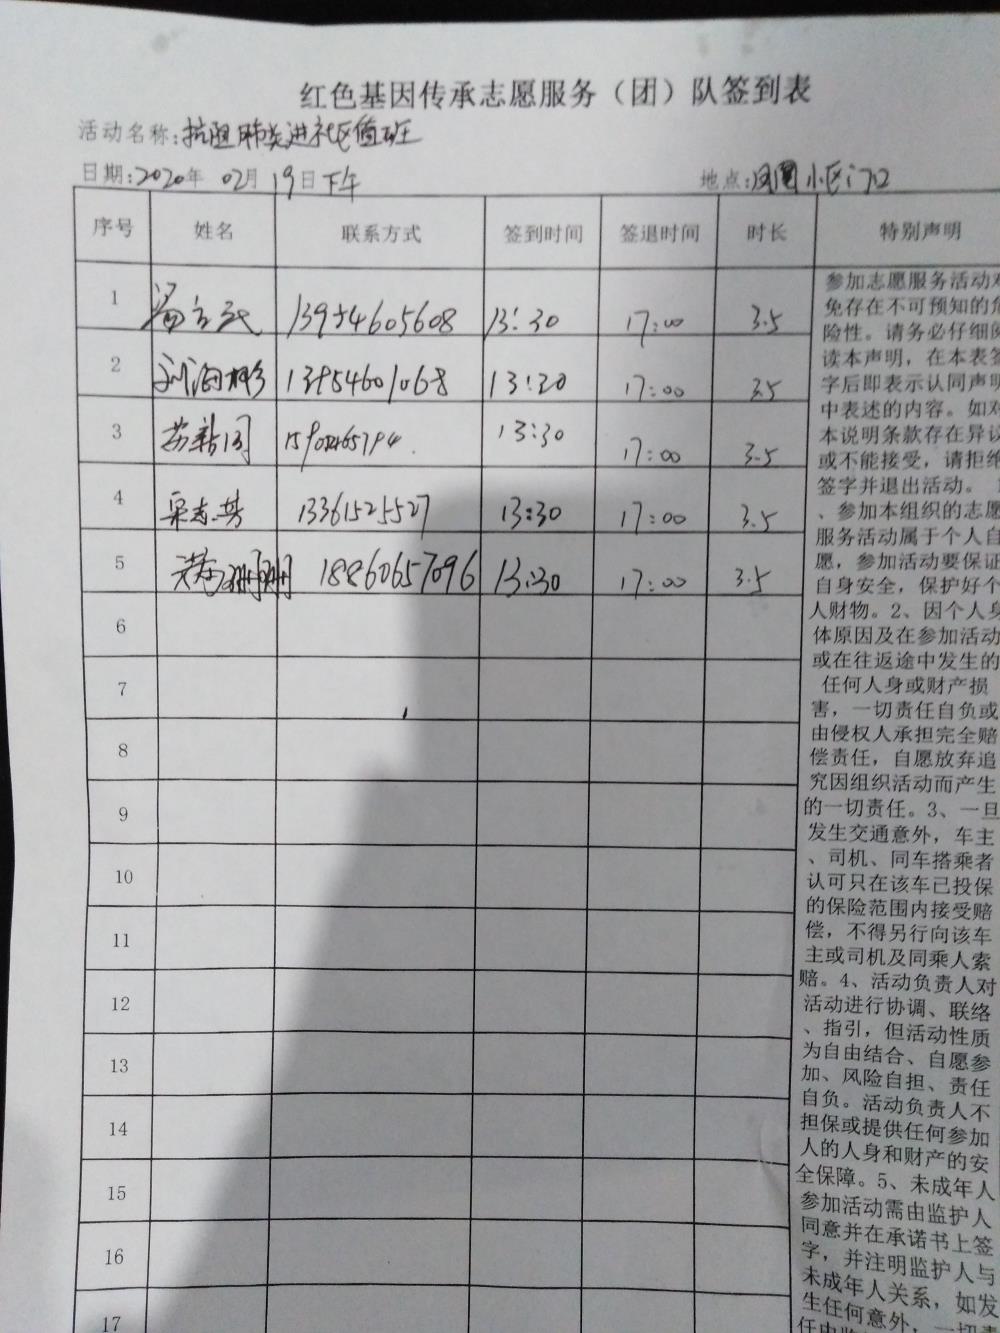 红色基因传承志愿服务（团）队签到表
活动名称:抗阻肺炎进社区值班
日期:2020年 02月 19日下午 地点:凤凰小区门口
序号 姓名 联系方式 签到时间 签退时间 时长 特别声明
1 13954605608 13:30 17:00 3.5
2 刘海彬 13954601068 13:30 17:00 3.5
3 苏新同 13:30 17:00 3.5
4 13361525527 13:30 17:00 3.5
5 18860657096 13:30 17:00 3.5
6
7
8
9
10
11
12
13
14
15
16
17
参加志愿服务活动
免存在不可预知的危
险性。请务必仔细阅
读本声明，在本表签
字后即表示认同声明
中表述的内容。如对
本说明条款存在异议
或不能接受，请拒绝
签字并退出活动。
、参加本组织的志愿
服务活动属于个人自
愿，参加活动要保证
自身安全，保护好个
人财物。2、因个人身
体原因及在参加活动
或在往返途中发生的
任何人身或财产损
害，一切责任自负或
由侵权人承担完全赔
偿责任，自愿放弃追
究因组织活动而产生
的一切责任。3、一旦
发生交通意外，车主
、司机、同车搭乘者
认可只在该车已投保
的保险范围内接受赔
偿，不得另行向该车
主或司机及同乘人索
赔。4、活动负责人对
活动进行协调、联络
、指引，但活动性质
为自由结合、自愿参
加、风险自担、责任
自负。活动负责人不
担保或提供任何参加
人的人身和财产的安
全保障。5、未成年人
参加活动需由监护人
同意并在承诺书上签
字，并注明监护人与
未成年人关系，如发
生任何意外，一切责